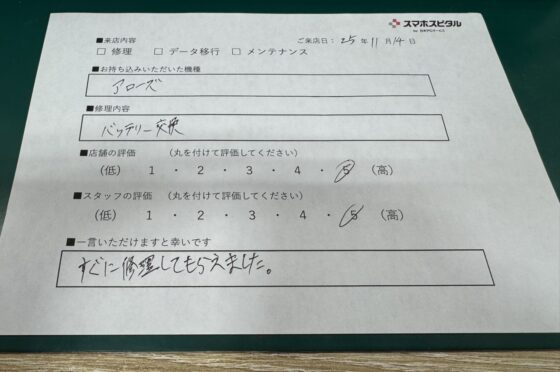 スマホスピタル
■来店内容
ご来店日：25年11月14日
□ 修理 □ データ移行 □ メンテナンス
■お持ち込みいただいた機種
アローズ
■修理内容
バッテリー交換
■店舗の評価 （丸を付けて評価してください）
（低） 1 ・ 2 ・ 3 ・ 4 ・ 5 （高）
■スタッフの評価 （丸を付けて評価してください）
（低） 1 ・ 2 ・ 3 ・ 4 ・ 5 （高）
■一言いただけますと幸いです
すぐに修理してもらえました。